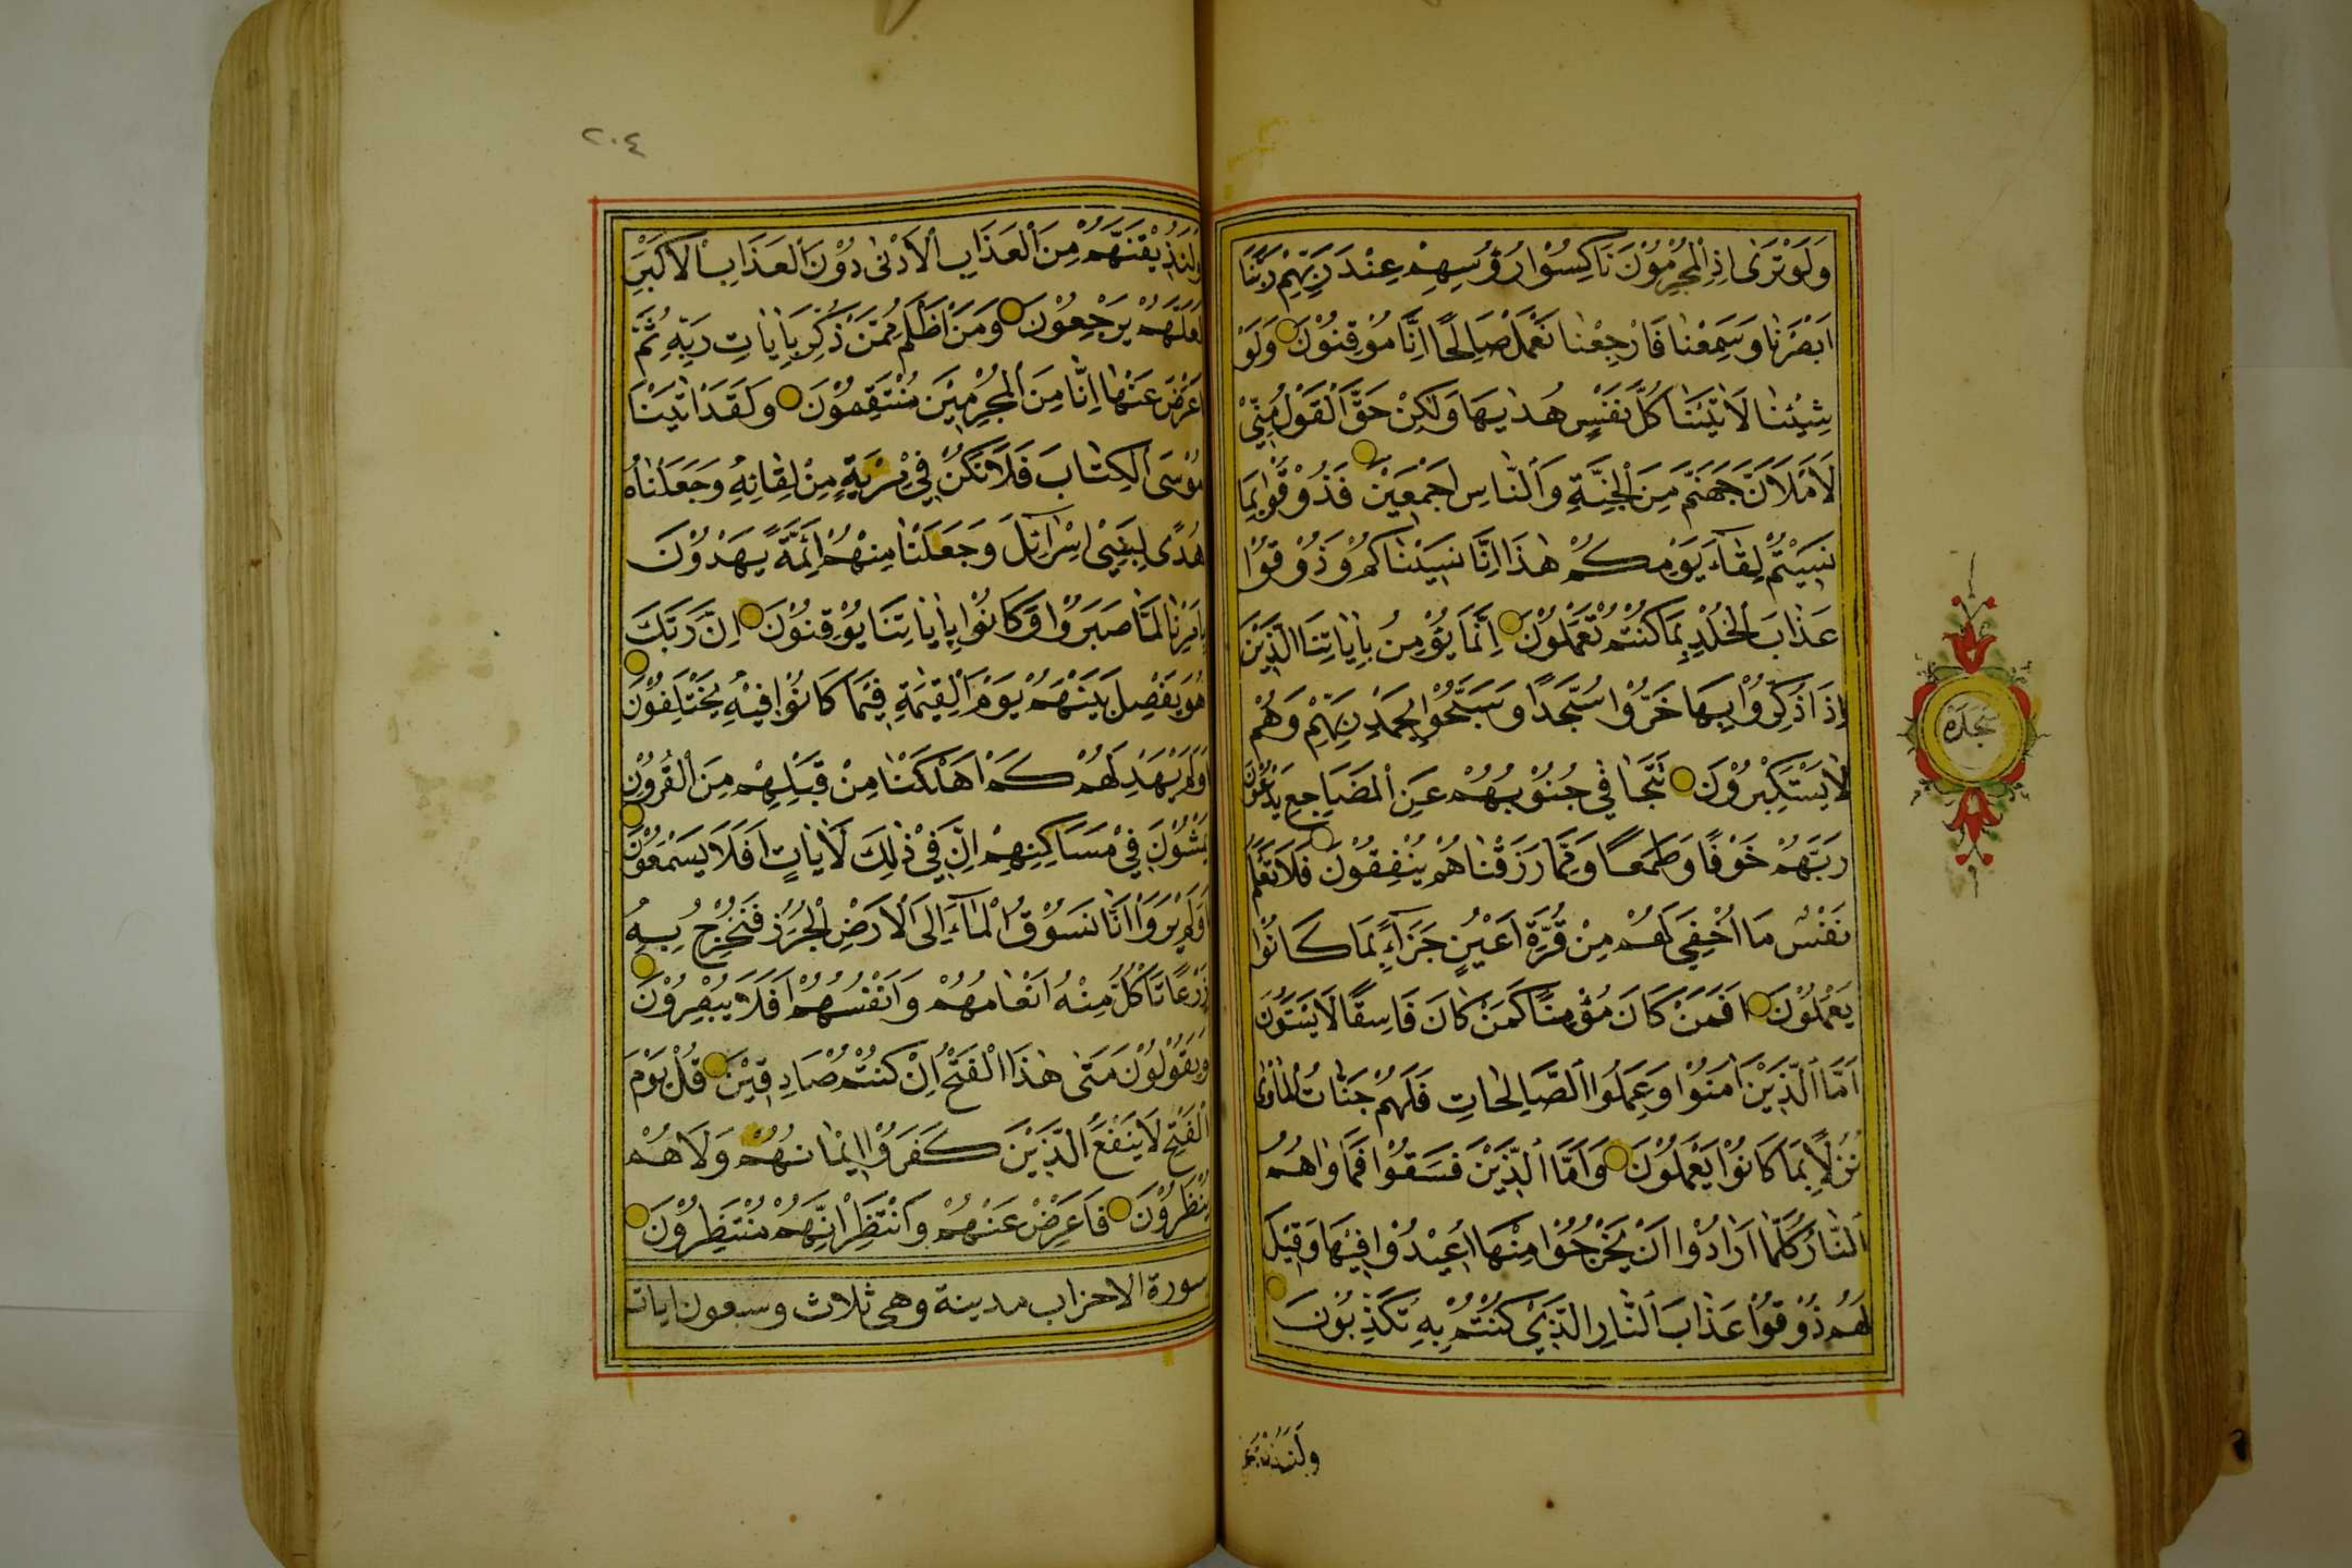 وَلَوْ تَرٰى اِذِ الْمُجْرِمُوْنَ نَاكِسُوْا رُؤُسِهِمْ عِنْدَ رَبِّهِمْ رَبَّنَا
اَبْصَرْنَا وَسَمِعْنَا فَارْجِعْنَا نَعْمَلْ صَالِحًا اِنَّا مُوْقِنُوْنَ وَلَوْ
شِئْنَا لَاٰتَيْنَا كُلَّ نَفْسٍ هُدٰيهَا وَلٰكِنْ حَقَّ الْقَوْلُ مِنِّيْ
لَاَمْلَاَنَّ جَهَنَّمَ مِنَ الْجِنَّةِ وَالنَّاسِ اَجْمَعِيْنَ فَذُوْقُوْا بِمَا
نَسِيْتُمْ لِقَآءَ يَوْمِكُمْ هٰذَا اِنَّا نَسِيْنَاكُمْ وَذُوْقُوْا
عَذَابَ الْخُلْدِ بِمَا كُنْتُمْ تَعْمَلُوْنَ اِنَّمَا يُؤْمِنُ بِاٰيَاتِنَا الَّذِيْنَ
اِذَا ذُكِّرُوْا بِهَا خَرُّوْا سُجَّدًا وَسَبَّحُوْا بِحَمْدِ رَبِّهِمْ وَهُمْ
لَا يَسْتَكْبِرُوْنَ تَتَجَافٰي جُنُوْبُهُمْ عَنِ الْمَضَاجِعِ يَدْعُوْنَ
رَبَّهُمْ خَوْفًا وَطَمَعًا وَمِمَّا رَزَقْنَاهُمْ يُنْفِقُوْنَ فَلَا تَعْلَمُ
نَفْسٌ مَا اُخْفِيَ لَهُمْ مِنْ قُرَّةِ اَعْيُنٍ جَزَآءً بِمَا كَانُوْا
يَعْمَلُوْنَ اَفَمَنْ كَانَ مُؤْمِنًا كَمَنْ كَانَ فَاسِقًا لَا يَسْتَوُوْنَ
اَمَّا الَّذِيْنَ اٰمَنُوْا وَعَمِلُوا الصَّالِحَاتِ فَلَهُمْ جَنَّاتُ الْمَأْوٰى
نُزُلًا بِمَا كَانُوْا يَعْمَلُوْنَ وَاَمَّا الَّذِيْنَ فَسَقُوْا فَمَأْوٰاهُمُ
النَّارُ كُلَّمَا اَرَادُوْا اَنْ يَخْرُجُوْا مِنْهَا اُعِيْدُوْا فِيْهَا وَقِيْلَ
لَهُمْ ذُوْقُوْا عَذَابَ النَّارِ الَّذِيْ كُنْتُمْ بِهِ تُكَذِّبُوْنَ
سجده
٢٠٤
وَلَنُذِيْقَنَّهُمْ مِنَ الْعَذَابِ الْاَدْنٰى دُوْنَ الْعَذَابِ الْاَكْبَرِ
لَعَلَّهُمْ يَرْجِعُوْنَ وَمَنْ اَظْلَمُ مِمَّنْ ذُكِّرَ بِاٰيَاتِ رَبِّهِ ثُمَّ
اَعْرَضَ عَنْهَا اِنَّا مِنَ الْمُجْرِمِيْنَ مُنْتَقِمُوْنَ وَلَقَدْ اٰتَيْنَا
مُوْسَى الْكِتَابَ فَلَا تَكُنْ فِيْ مِرْيَةٍ مِنْ لِقَائِهِ وَجَعَلْنَاهُ
هُدًى لِبَنِيْ اِسْرَائِلَ وَجَعَلْنَا مِنْهُمْ اَئِمَّةً يَهْدُوْنَ
بِاَمْرِنَا لَمَّا صَبَرُوْا وَكَانُوْا بِاٰيَاتِنَا يُوْقِنُوْنَ اِنَّ رَبَّكَ
هُوَ يَفْصِلُ بَيْنَهُمْ يَوْمَ الْقِيٰمَةِ فِيْمَا كَانُوْا فِيْهِ يَخْتَلِفُوْنَ
اَوَلَمْ يَهْدِ لَهُمْ كَمْ اَهْلَكْنَا مِنْ قَبْلِهِمْ مِنَ الْقُرُوْنِ
يَمْشُوْنَ فِيْ مَسَاكِنِهِمْ اِنَّ فِيْ ذٰلِكَ لَاٰيَاتٍ اَفَلَا يَسْمَعُوْنَ
اَوَلَمْ يَرَوْا اَنَّا نَسُوْقُ الْمَآءَ اِلَى الْاَرْضِ الْجُرُزِ فَنُخْرِجُ بِهِ
زَرْعًا تَأْكُلُ مِنْهُ اَنْعَامُهُمْ وَاَنْفُسُهُمْ اَفَلَا يُبْصِرُوْنَ
وَيَقُوْلُوْنَ مَتٰى هٰذَا الْفَتْحُ اِنْ كُنْتُمْ صَادِقِيْنَ قُلْ يَوْمَ
الْفَتْحِ لَا يَنْفَعُ الَّذِيْنَ كَفَرُوْا اِيْمَانُهُمْ وَلَا هُمْ
يُنْظَرُوْنَ فَاَعْرِضْ عَنْهُمْ وَانْتَظِرْ اِنَّهُمْ مُنْتَظِرُوْنَ
سورة الاحزاب مدينة وهى ثلاث وسبعون ايات